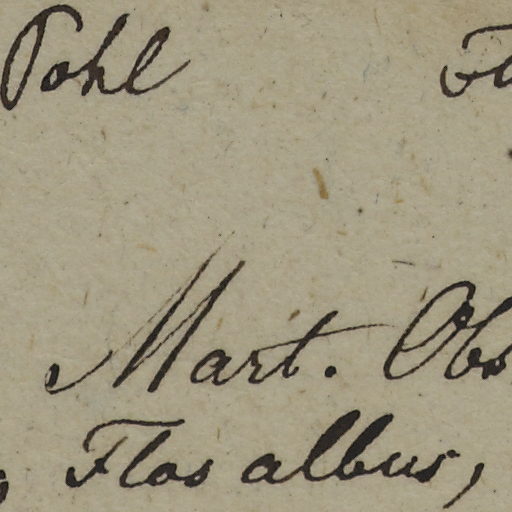 Pohl
Mart. Obs
Flos albus,